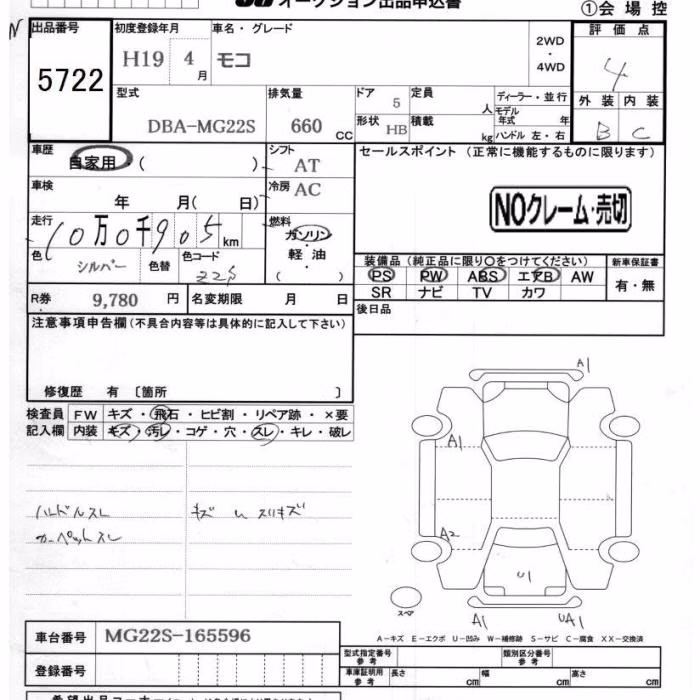 オークション出品申込書
①会場控
出品番号 初度登録年月 車名・グレード 評価点
5722 H19 4月 モコ 2WD・4WD 4
型式 排気量 ドア 定員 ディーラー・並行 外装 内装
DBA-MG22S 660CC 5 人 モデル年式 年 B C
形状 HB 積載 kg ハンドル 左・右
車歴 自家用・( ) シフト AT セールスポイント (正常に機能するものに限ります)
車検 年 月( 日) 冷房 AC
NOクレーム・売切
走行 10万0千905km 燃料 ガソリン・軽油( )
色 シルバー 色替 色コード Z2S
装備品(純正品に限り○をつけてください) 新車保証書
PS PW ABS エアB AW 有・無
SR ナビ TV カワ
R券 9,780円 名変期限 月 日 後日品
注意事項申告欄(不具合内容等は具体的に記入して下さい)
修復歴 有 〔箇所 〕
検査員記入欄 FW キズ・飛石・ヒビ割・リペア跡・×要
内装 キズ・汚レ・コゲ・穴・スレ・キレ・破レ
ハンドルスレ キズ
カーペットスレ
A1
A1
A2
U1
スペア
A1 UA1
A-キズ E-エクボ U-凹み W-補修跡 S-サビ C-腐食 XX-交換済
車台番号 MG22S-165596
登録番号
型式指定番号 参考 類別区分番号 参考
車庫証明用 参考 長さ cm 幅 cm 高さ cm